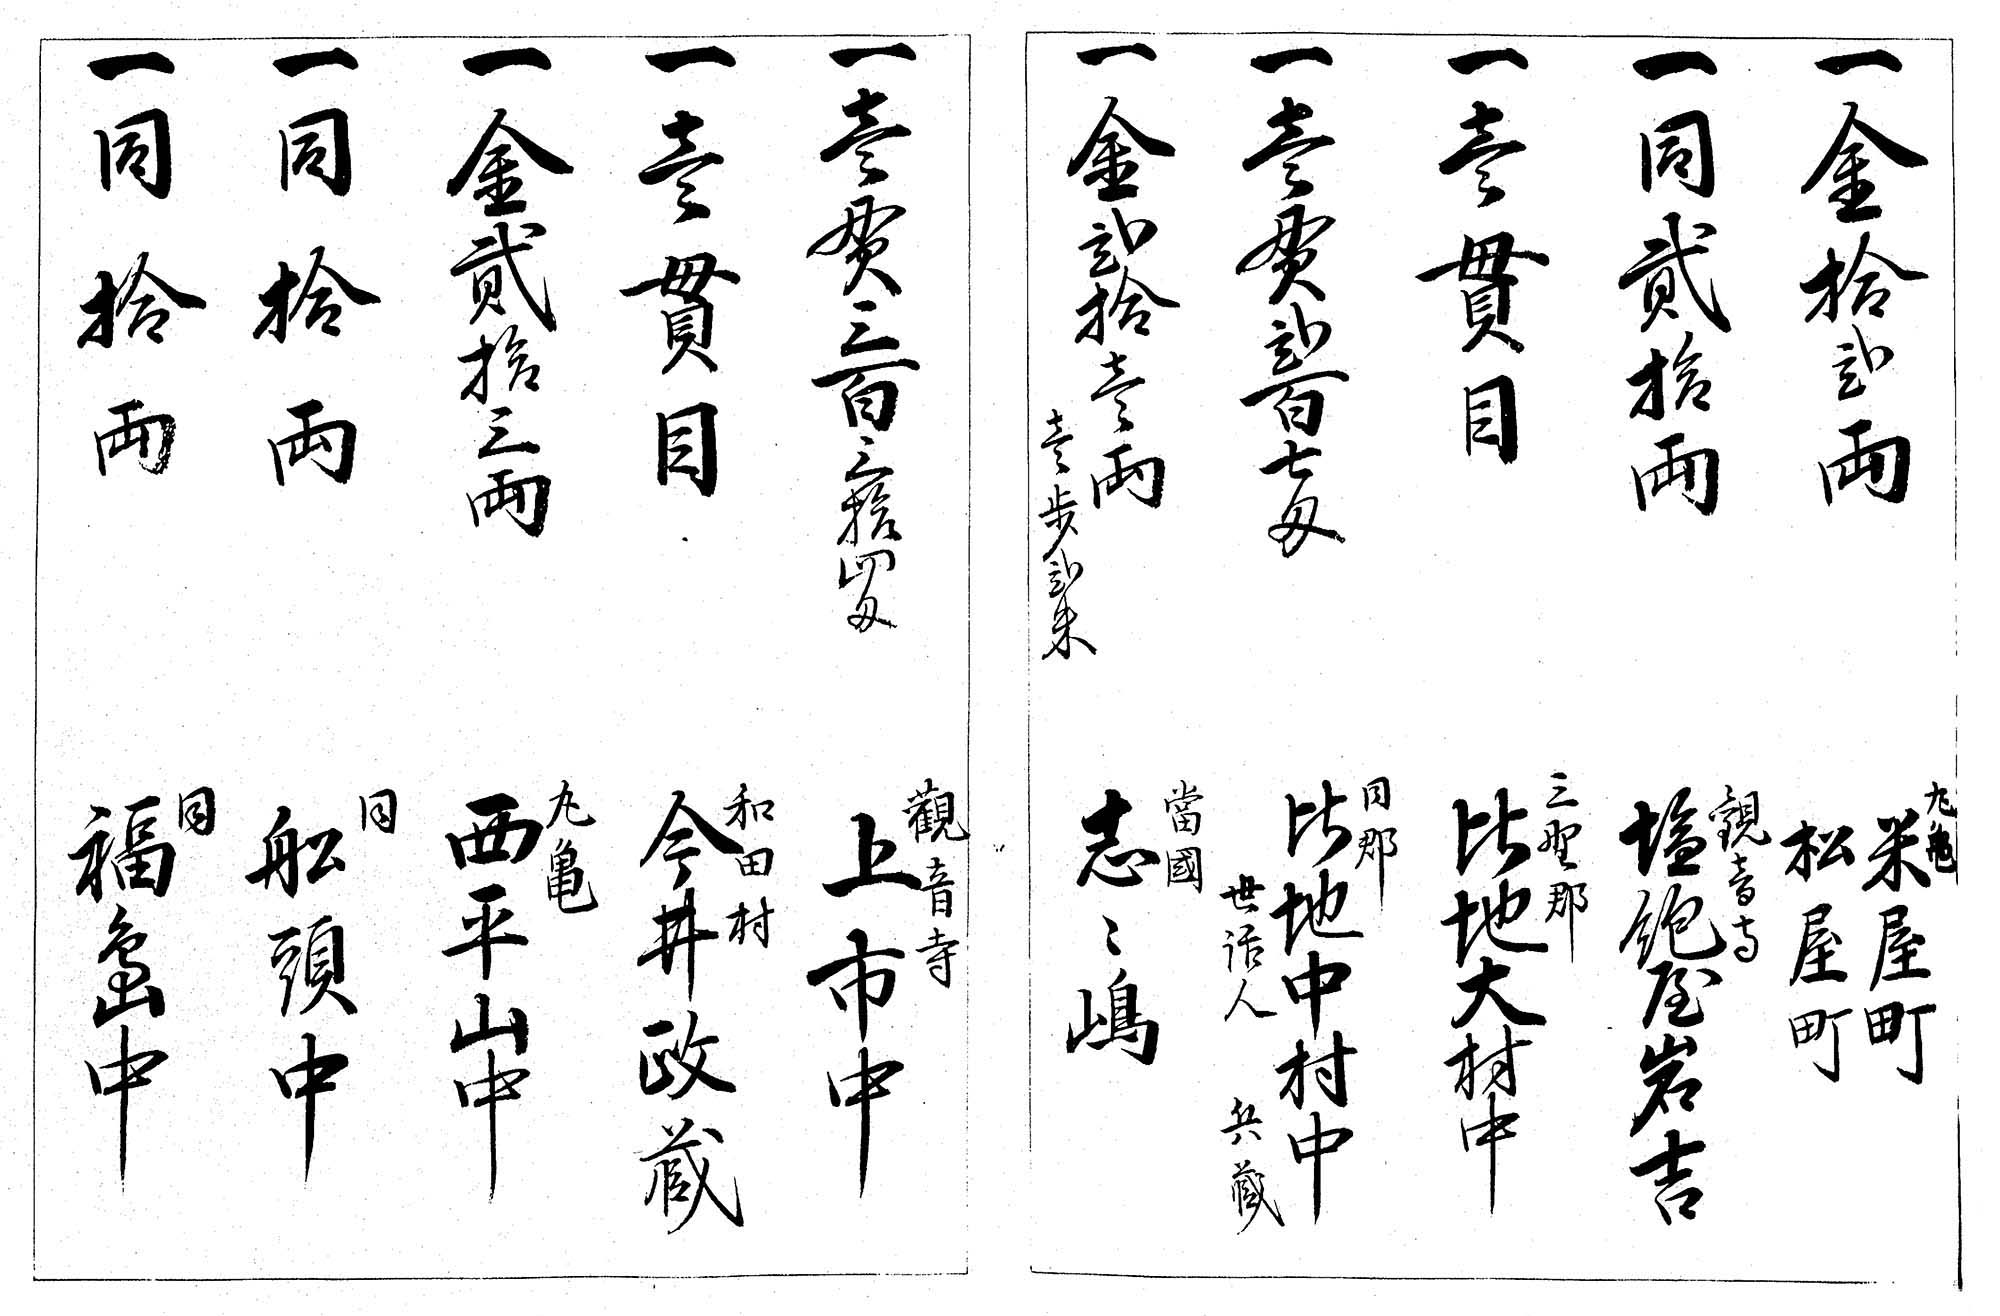 一金拾弐両
丸亀
米屋町
松屋町
一同貳拾両
観音寺
塩飽屋岩吉
一壱貫目
三野郡
比地大村中
一壱貫弐百七匁
同郡
比地中村中
世話人 兵蔵
一金弐拾壱両
壱歩弐朱
當國
志々嶋
一壱貫三百三拾四匁
觀音寺
上市中
一壱貫目
和田村
今井政蔵
一金貳拾三両
丸亀
西平山中
一同拾両
同
舩頭中
一同拾両
同
福嶌中